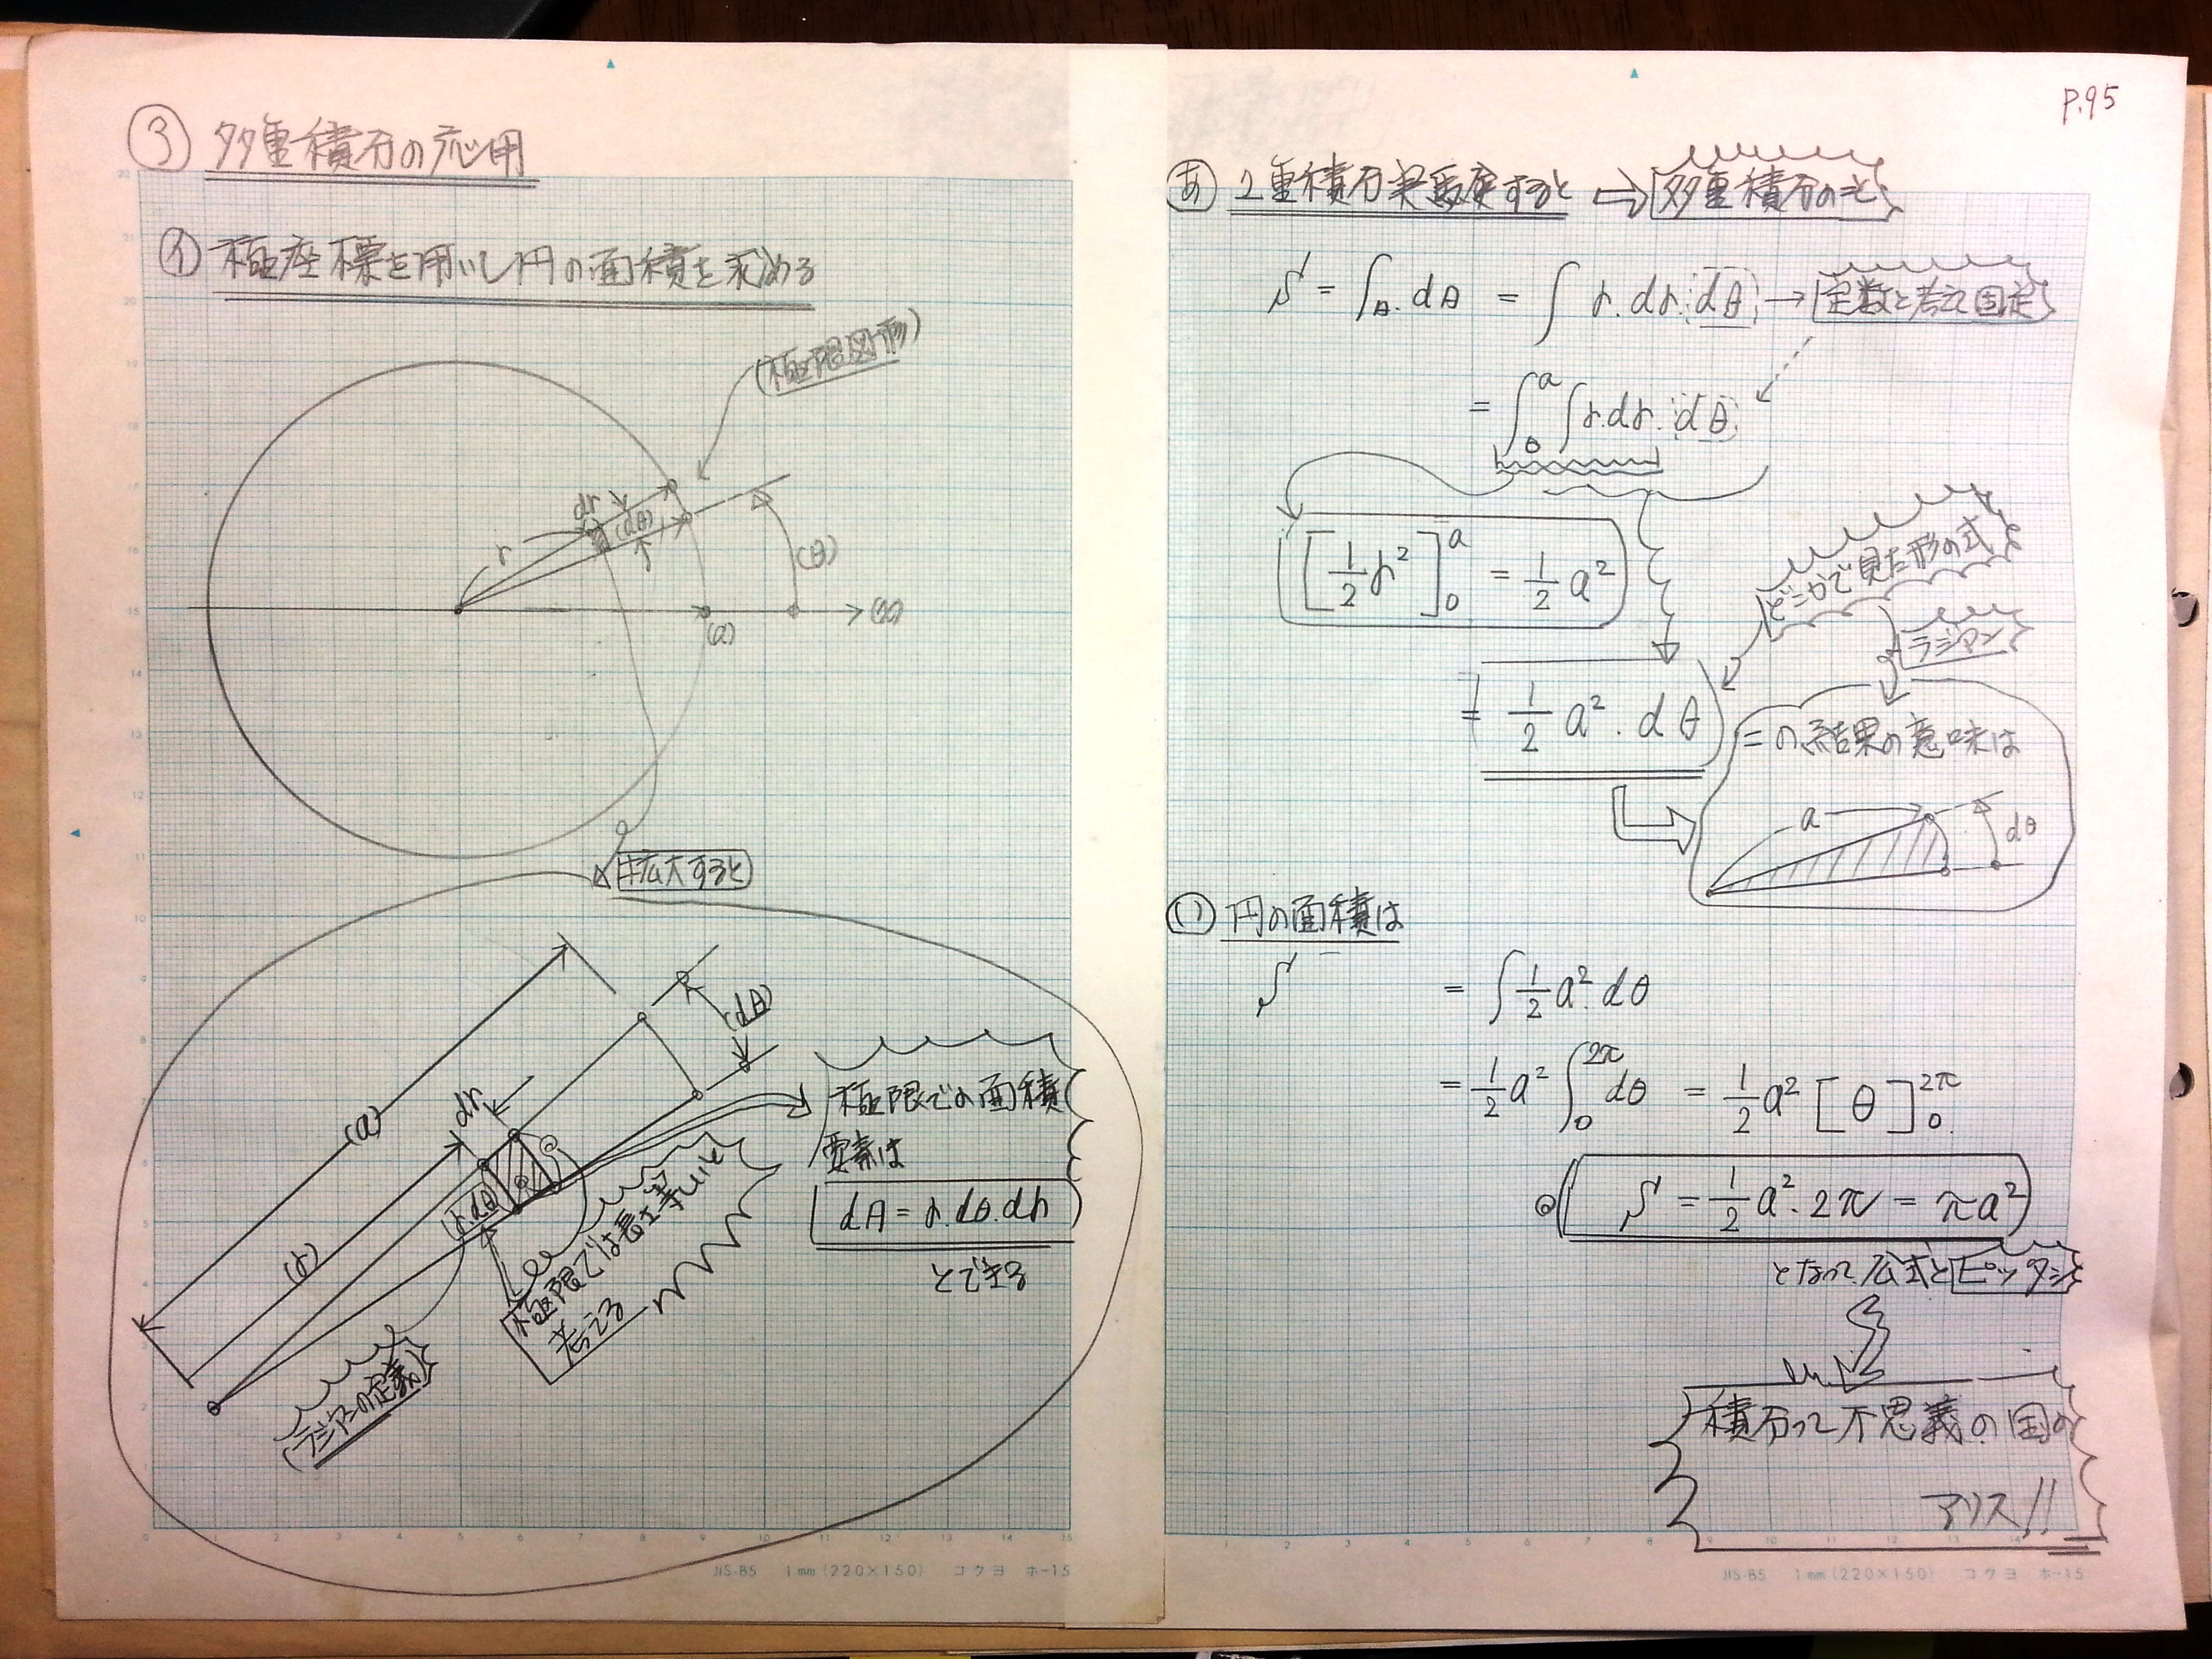 ③ 多重積分の応用
㋑ 極座標を用いし円の面積を求める
(極限図形)
dr
(dθ)
r
(θ)
(a)
(x)
拡大すると
(dθ)
dr
(a)
(r)
(r.dθ)
極限での面積
要素は
dA = r.dθ.dr
とできる
極限では長さ等しいと
考える
(ラジアンの定義)
P.95
㋐ 2重積分実際すると ⇨ 多重積分のこと
S = ∫A. dA = ∫ r. dr. dθ → 定数と考え固定
= ∫₀ᵃ ∫ r.dr. dθ
[1/2 r²]₀ᵃ = 1/2 a²
どこかで見た形の式
ラジアン
= 1/2 a². dθ
=の結果の意味は
a
dθ
(い) 円の面積は
S = ∫ 1/2 a². dθ
= 1/2 a² ∫₀²π dθ = 1/2 a² [θ]₀²π
S = 1/2 a². 2π = πa²
となって公式とピッタシ
積分って不思議の国の
アリス!!
JIS-B5 1mm (220×150) コクヨ ホ-15
JIS-B5 1mm (220×150) コクヨ ホ-15